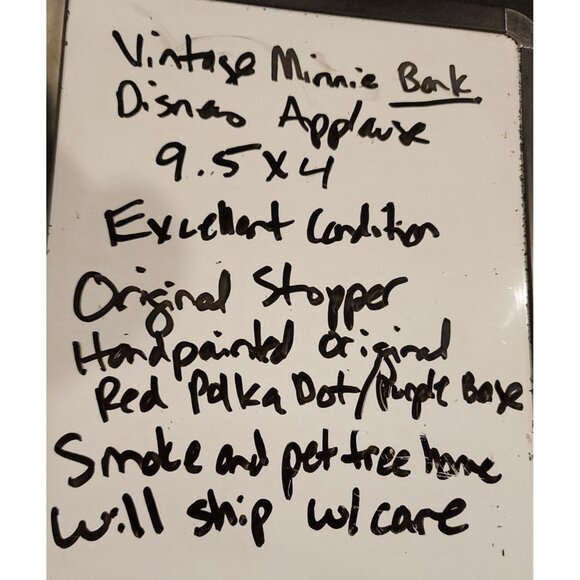 Vintage Minnie Bank
Disney Applause
9.5 x 4
Excellent Condition
Original Stopper
Handpainted Original
Red Polka Dot/Purple Base
Smoke and pet free home
Will ship w/care